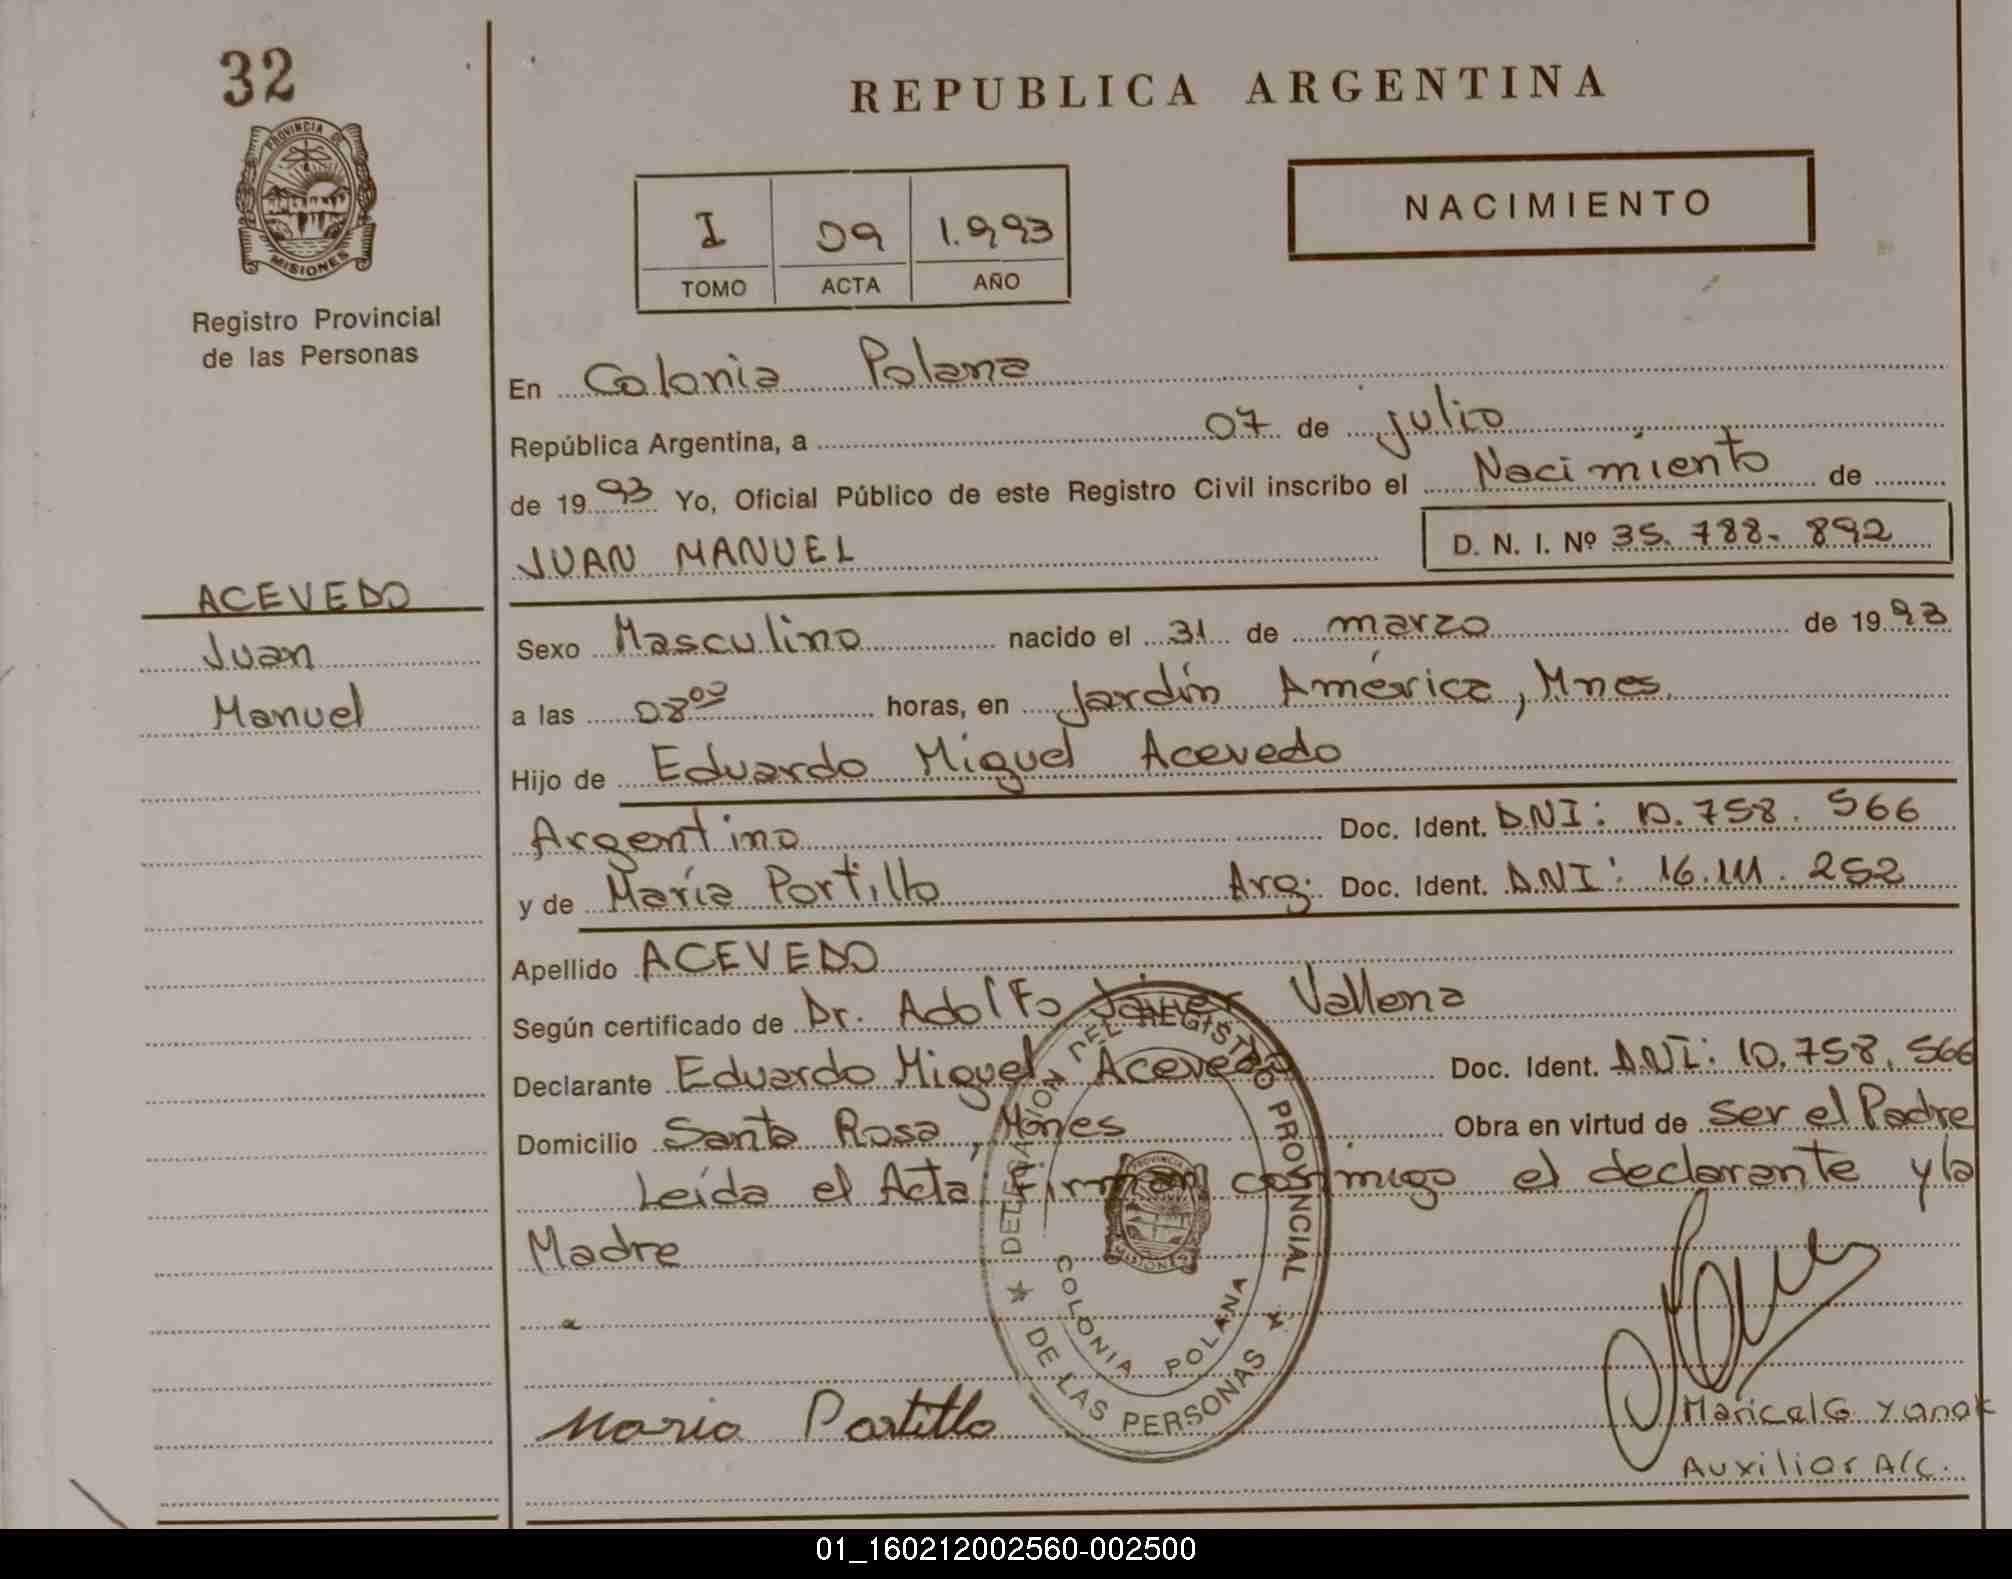 32
PROVINCIA DE
MISIONES
Registro Provincial
de las Personas
ACEVEDO
Juan
Manuel
REPUBLICA ARGENTINA
I 09 1.993
TOMO ACTA AÑO
NACIMIENTO
En Colonia Polana
República Argentina, a 07 de julio
de 1993 Yo, Oficial Público de este Registro Civil inscribo el Nacimiento de
JUAN MANUEL D. N. I. Nº 35.788.892
Sexo Masculino nacido el 31 de marzo de 1993
a las 08⁰⁰ horas, en Jardín América, Mnes.
Hijo de Eduardo Miguel Acevedo
Argentino Doc. Ident. DNI: 10.758.566
y de María Portillo Arg. Doc. Ident. DNI: 16.111.252
Apellido ACEVEDO
Según certificado de Dr. Adolfo Javier Vallena
Declarante Eduardo Miguel Acevedo Doc. Ident. DNI: 10.758.566
Domicilio Santa Rosa, Mnes Obra en virtud de Ser el Padre
Leída el Acta Firman conmigo el declarante y la
Madre
DELEGACION DEL REGISTRO PROVINCIAL
DE LAS PERSONAS
COLONIA POLANA
PROVINCIA
MISIONES
Maria Portillo
Maricel G. Yanak
Auxiliar A/C.
01_160212002560-002500